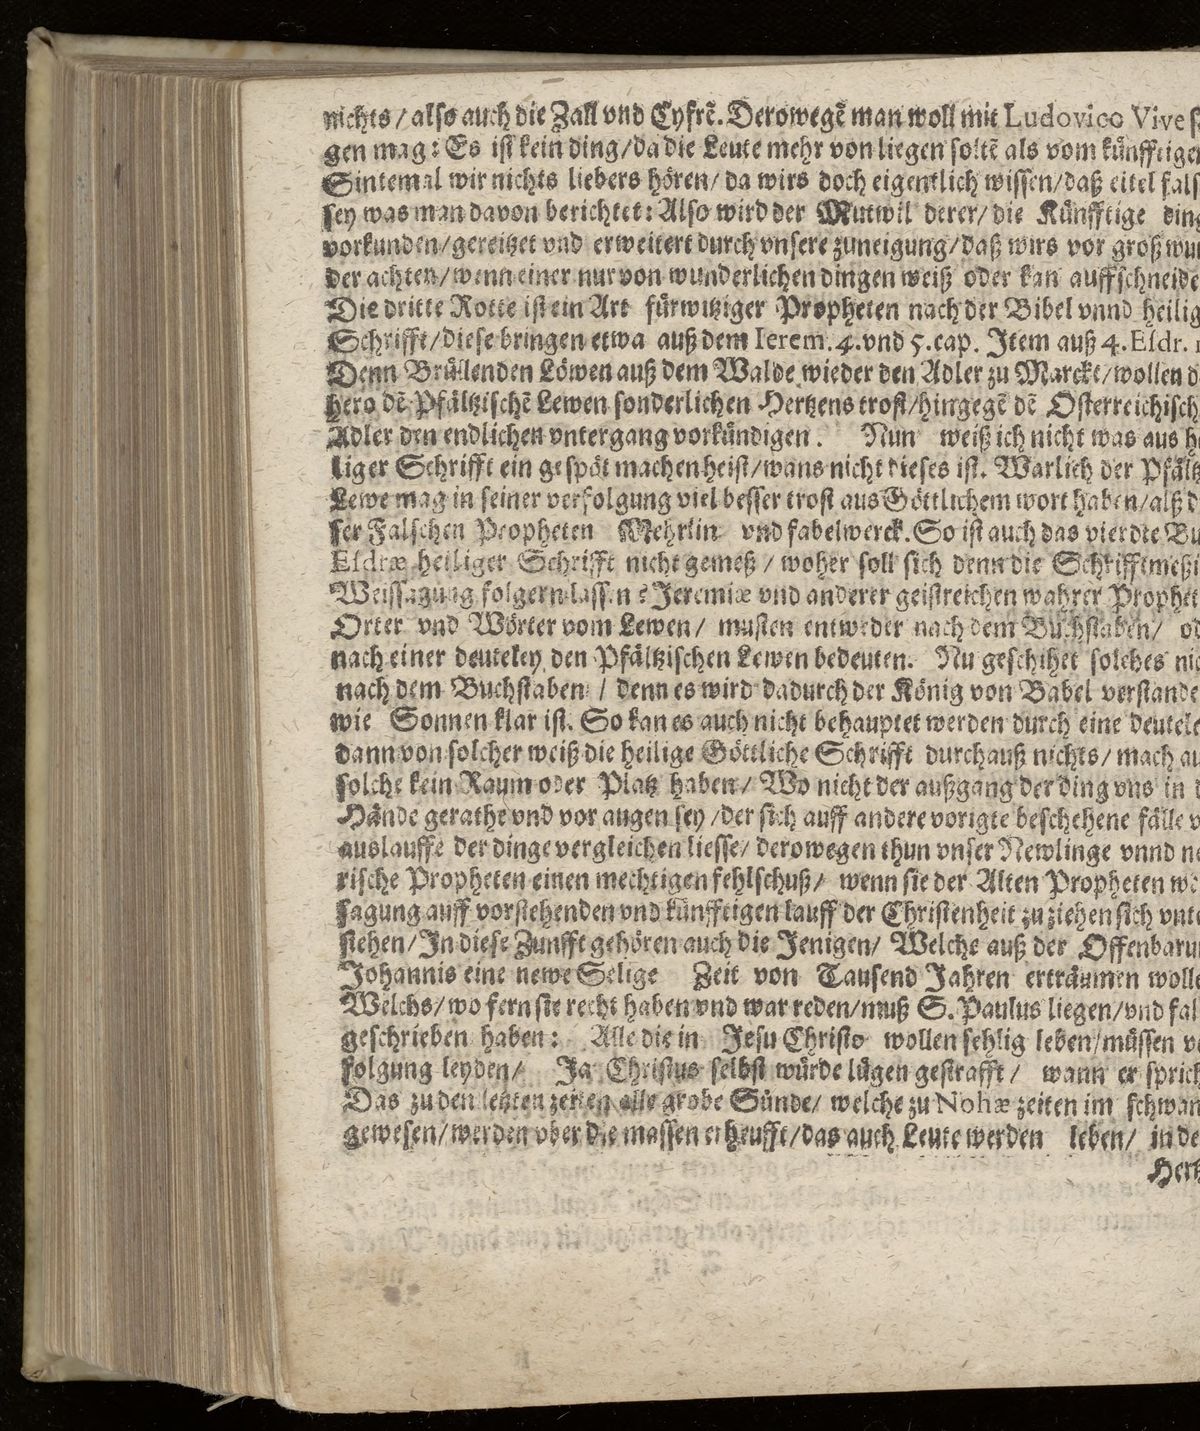 nichts / also auch die Zall vnd Cyfrẽ. Derowegẽ man woll mit Ludovico Vive
gen mag: Es ist kein ding/da die Leute mehr von liegen soltẽ als vom
Sintemal wir nichts liebers hören/ da wirs doch eigentlich wissen/daß eitel
sey was man davon berichtet: Also wird der Mutwil derer/die Künfftige
vorkunden/gereitzet vnd erweitert durch vnsere zuneigung/daß wirs vor groß
der achten/wenn einer nur von wunderlichen dingen weiß oder kan
Die dritte Rotte ist ein Art fürwitziger Propheten nach der Bibel vnnd
Schrifft/diese bringen etwa auß dem Ierem. 4. vnd 5. cap. Item auß 4. Esdr.
Denn Brüllenden Löwen auß dem Walde wieder den Adler zu Marckt/wollen
hero dẽ Pfältzischẽ Lewen sonderlichen Hertzens trost/hingegẽ dẽ
Adler den endlichen vntergang vorkündigen. Nun weiß ich nicht was aus
liger Schrifft ein gespöt machen heist/wans nicht dieses ist. Warlich der
Lewe mag in seiner verfolgung viel besser trost aus Göttlichem wort haben/alß
ser Falschen Propheten Mehrlin vnd fabelwerck. So ist auch das vierdte
Esdræ heiliger Schrifft nicht gemeß / woher soll sich denn die
Weissagung folgern lassen? Jeremiæ vnd anderer geistreichen wahrer
Orter vnd Wörter vom Lewen/ musten entweder nach dem Buchstaben/
nach einer deuteley den Pfältzischen Lewen bedeuten. Nu geschihet solches
nach dem Buchstaben / denn es wird dadurch der König von Babel
wie Sonnen klar ist. So kan es auch nicht behauptet werden durch eine
dann von solcher weiß die heilige Göttliche Schrifft durchauß nichts/ mach
solche kein Raum oder Platz haben/ Wo nicht der außgang der ding vns in
Hände gerathe vnd vor augen sey /der sich auff andere vorigte beschehene fälle
auslauffe der dinge vergleichen liesse/ derowegen thun vnser Newlinge vnnd
rische Propheten einen mechtigen fehlschuß/ wenn sie der Alten Propheten
sagung auff vorstehenden vnd künfftigen lauff der Christenheit zu ziehen sich
stehen/In diese Zunfft gehören auch die Jenigen/ Welche auß der
Johannis eine newe Selige Zeit von Tausend Jahren erträumen
Welchs/wo fern sie recht haben vnd war reden/muß S. Paulus liegen/vnd
geschrieben haben: Alle die in Jesu Christo wollen sehlig leben/müssen
folgung leyden/ Ja Christus selbst würde lügen gestrafft / wann er
Das zu den letzten zeiten alle grobe Sünde/ welche zu Nohæ zeiten im
gewesen/werden vber die massen erheufft/das auch Leute werden leben/ in